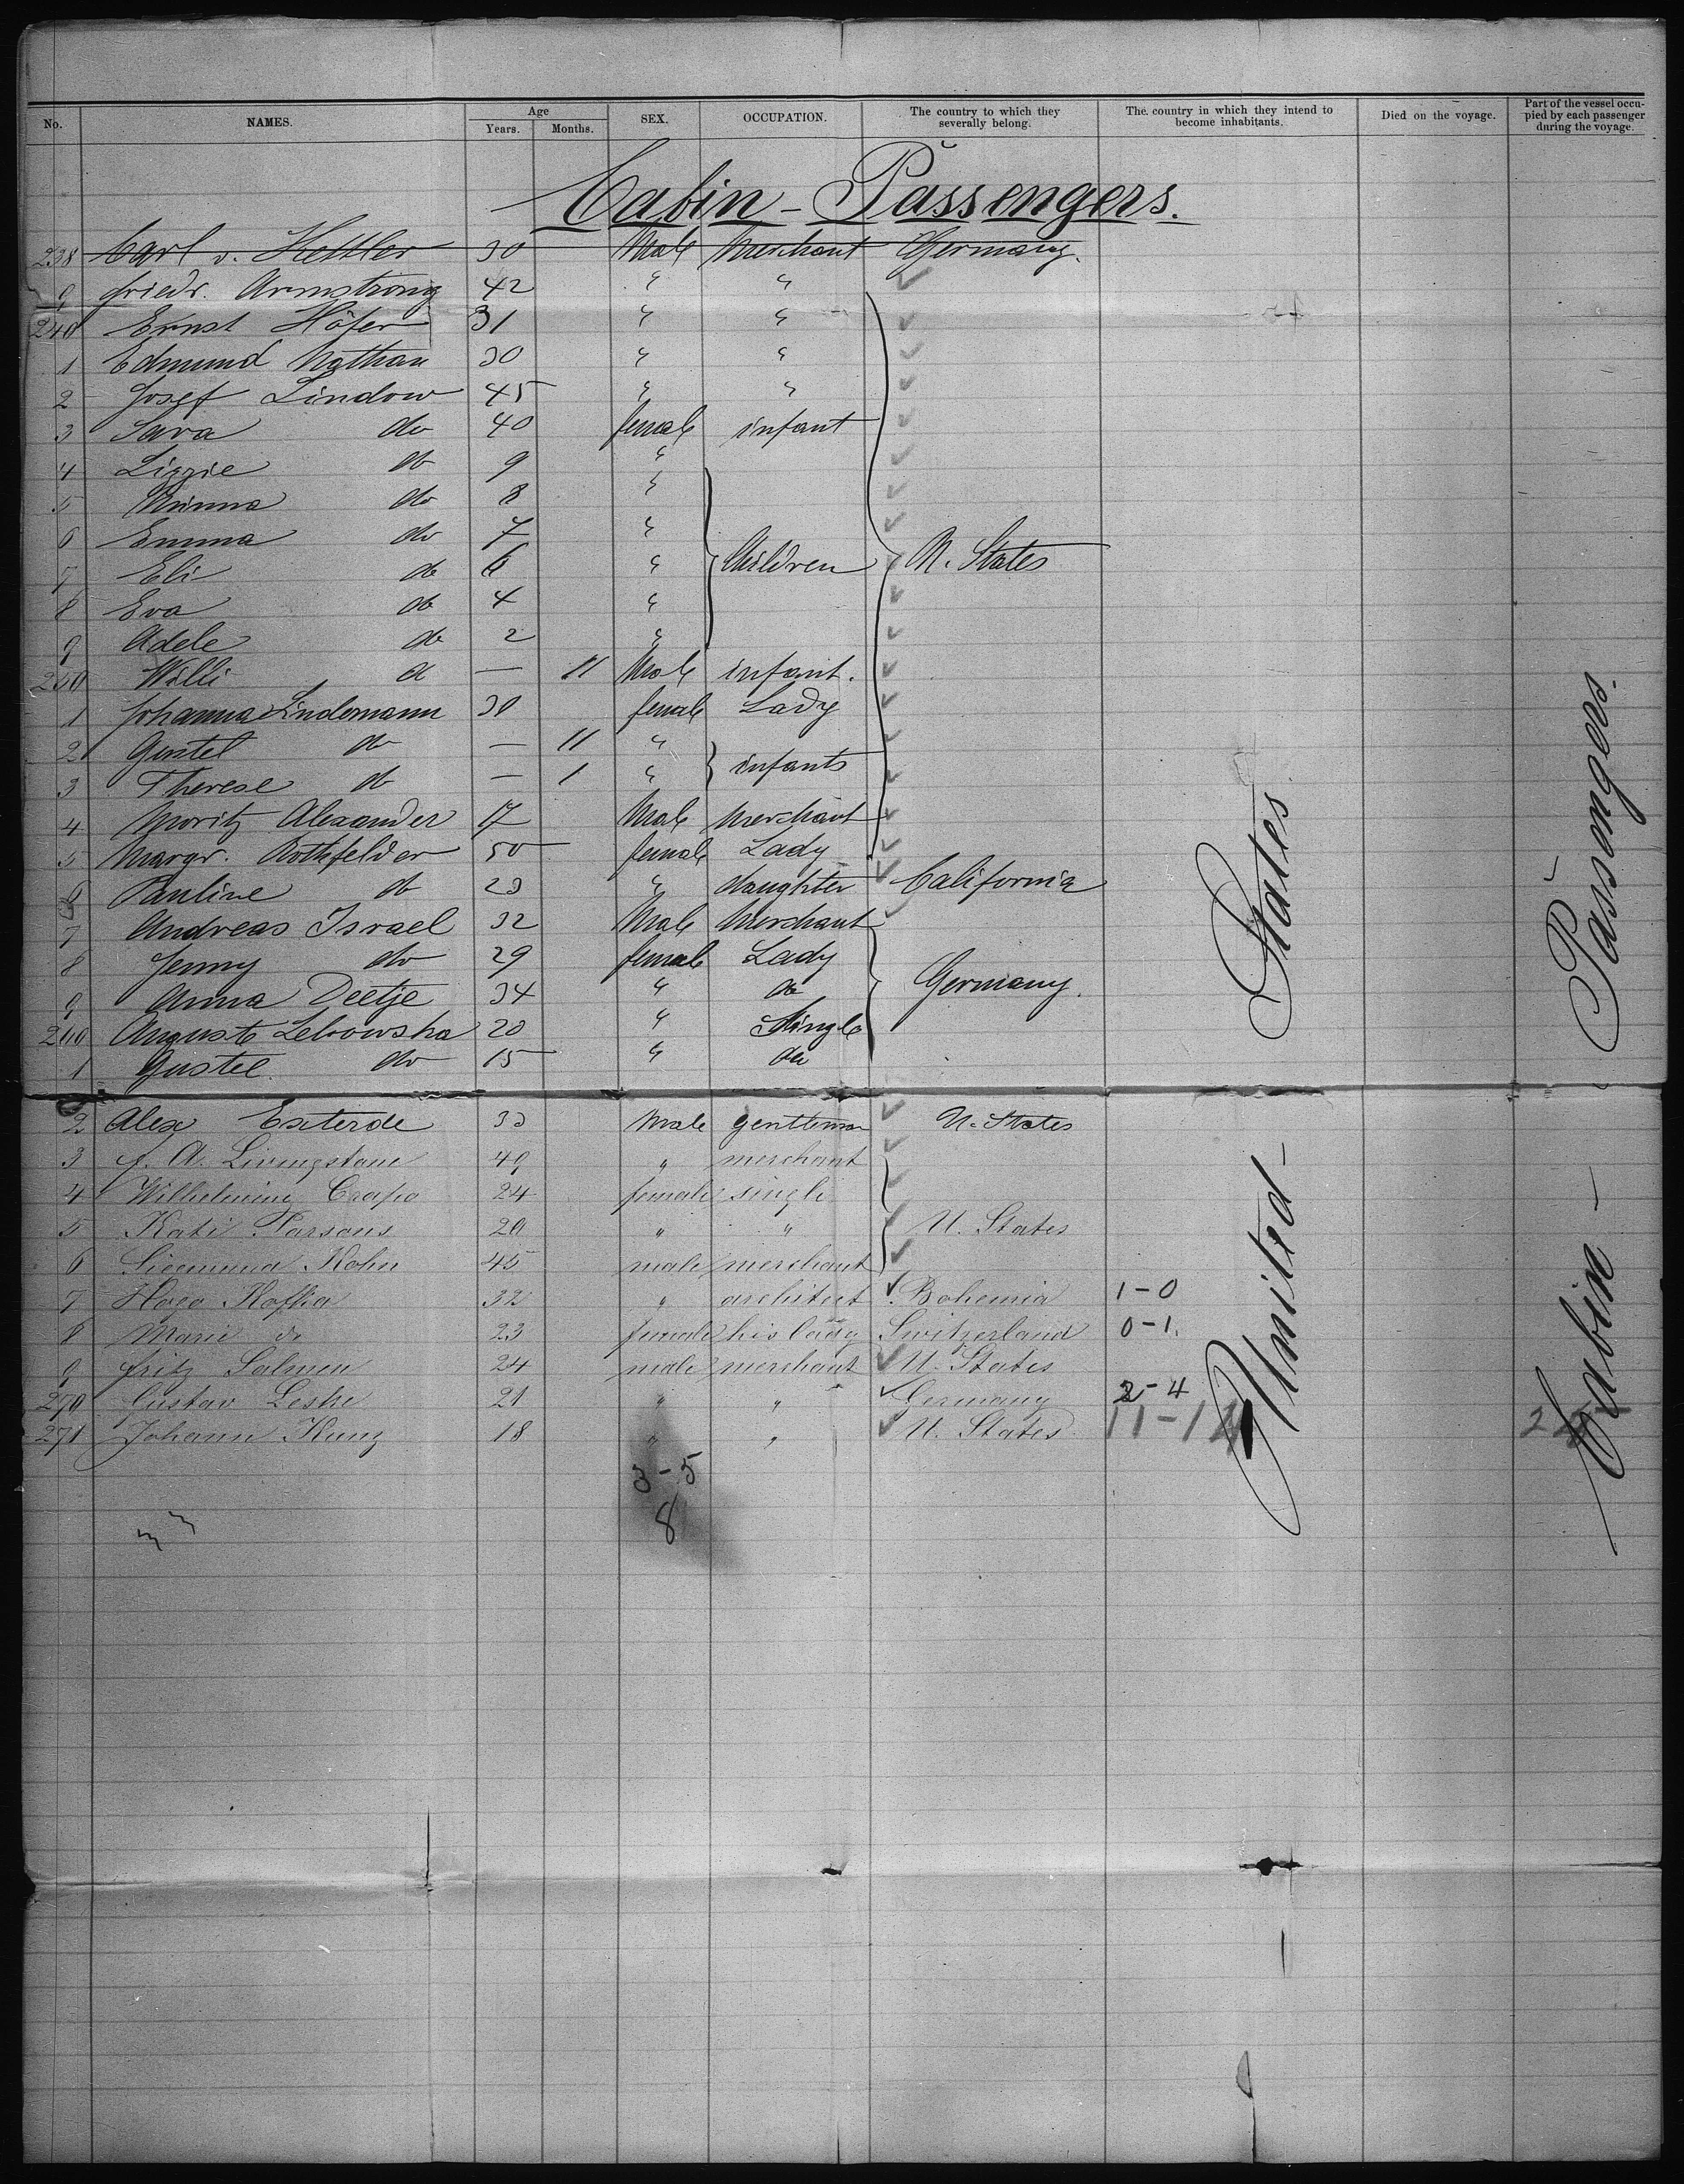 No. NAMES. Age Years. Months. SEX. OCCUPATION. The country to which they severally belong. The country in which they intend to become inhabitants. Died on the voyage. Part of the vessel occupied by each passenger during the voyage.
Cabin - Passengers.
238 Carl v. Kettler 30 Male Merchant Germany.
9 Friedr. Armstrong 42 " "
240 Ernst Höfer 31 " "
1 Edmund Nathan 30 " "
2 Josef Lindow 45 " "
3 Sara do 40 female infant
4 Lizzie do 9 "
5 Minna do 8 "
6 Emma do 7 "
7 Eli do 6 " Children U. States
8 Eva do 4 "
9 Adele do 2 "
250 Willi d — 11 Male infant.
1 Johanna Lindemann 30 female Lady
2 Gustel do — 11 "
3 Therese do — 1 " infants
4 Moritz Alexander 17 Male Merchant
5 Margr. Rothfelder 50 female Lady
6 Pauline do 23 " daughter California
7 Andreas Israel 32 Male Merchant
8 Jenny do 29 female Lady
9 Anna Deetje 34 " do Germany.
260 Auguste Lebowska 20 " Single
1 Gustel do 15 " do
2 Alex Exterde 33 Male gentleman U. States
3 J. A. Livingstone 49 " merchant
4 Wilhelmine Crapo 24 female single
5 Kati Parsons 20 " " U. States
6 Kohn 45 male merchant
7 Hugo Kafka 32 " architect Bohemia 1-0
8 Marie do 23 female his lady Switzerland 0-1.
9 Fritz Salmen 24 male merchant U. States
270 Gustav Leske 21 " " Germany 2-4
271 Johann Kunz 18 " " U. States 11-1
3-5
8
United States
Cabin - Passengers.